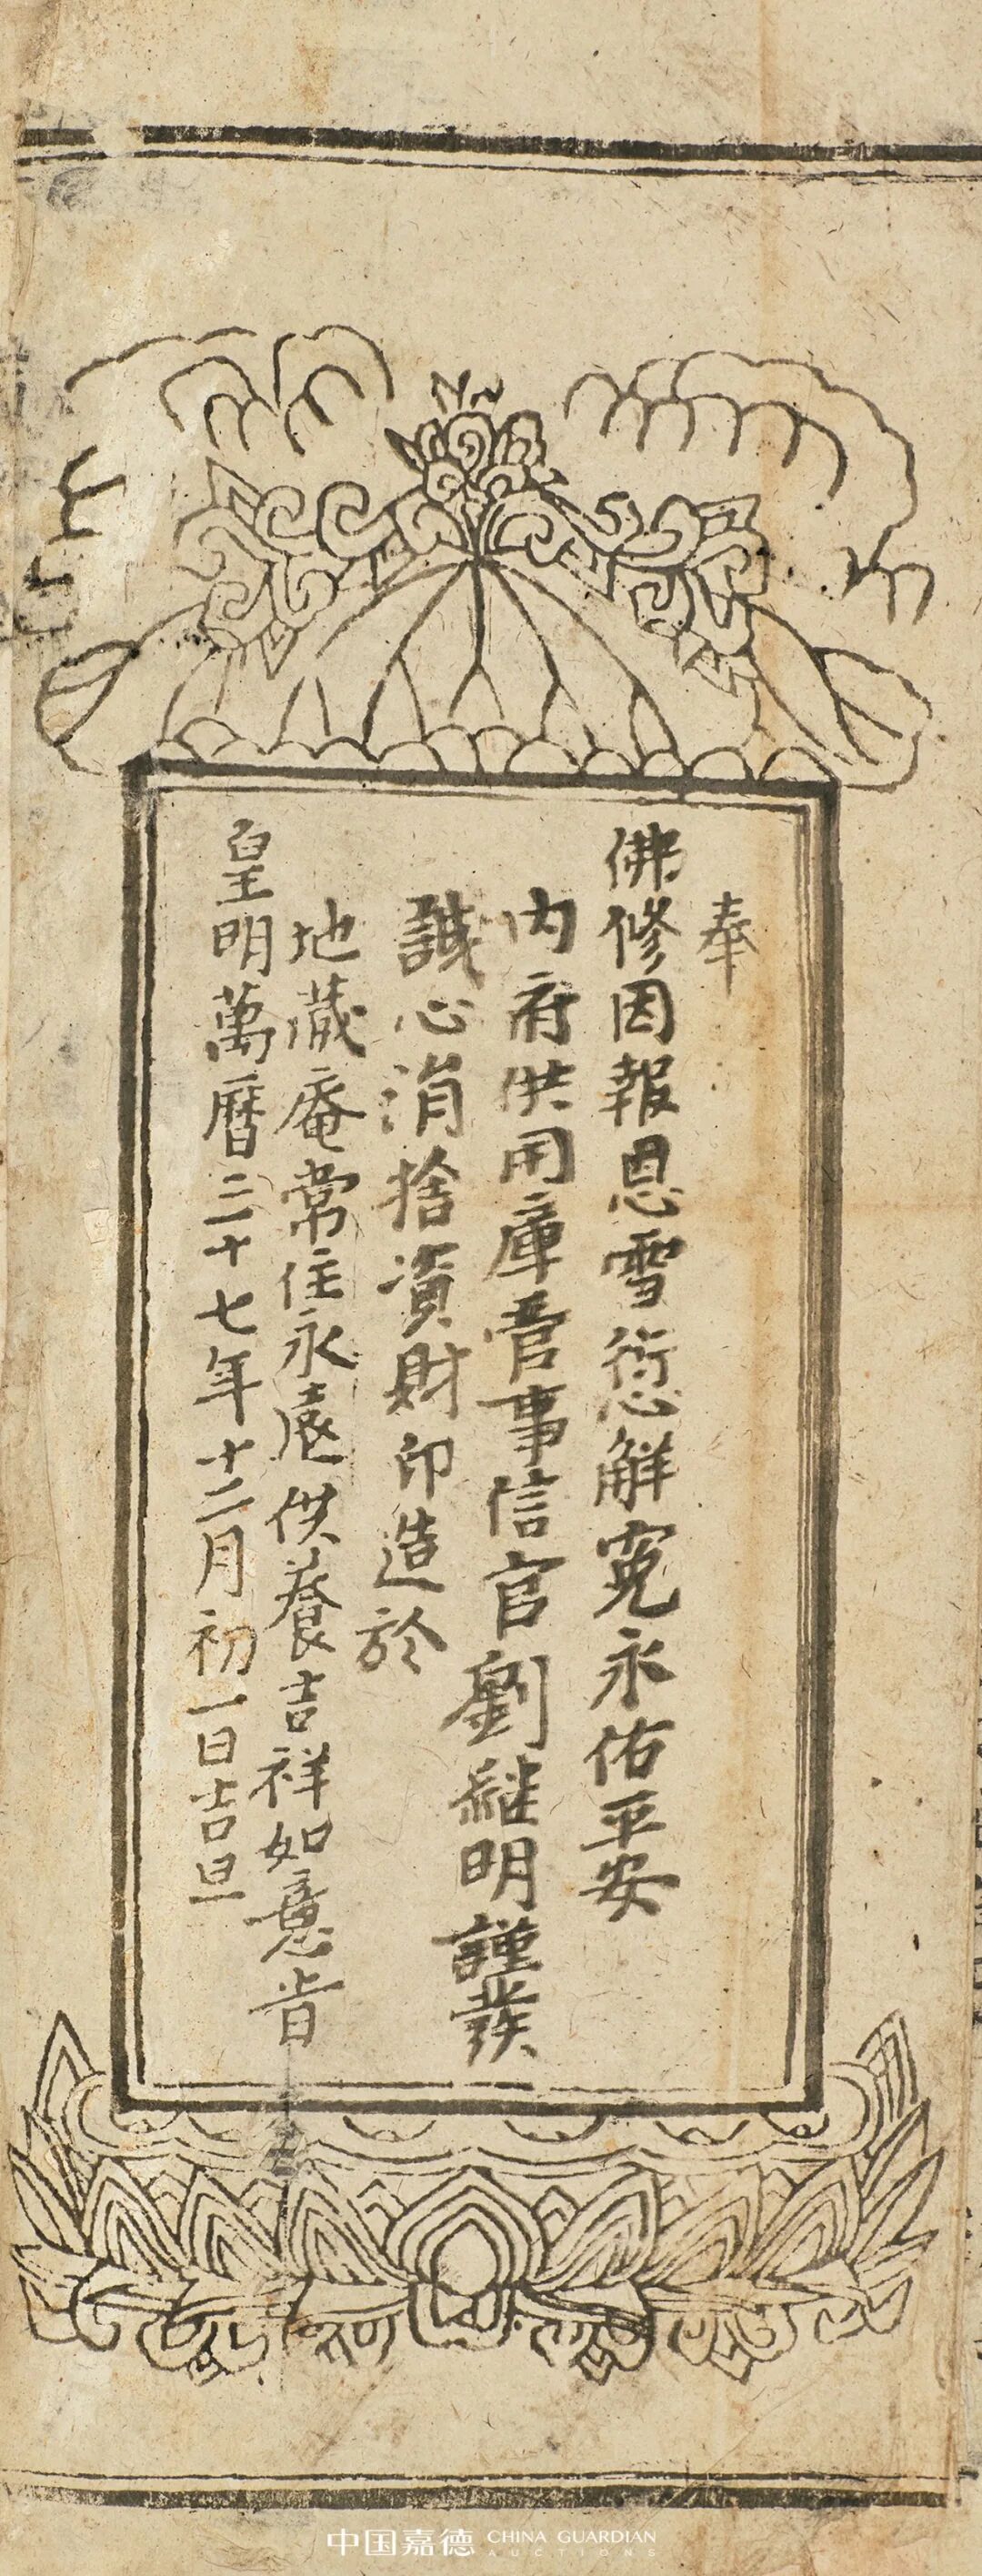 奉
佛修因報恩雪愆解寃永佑平安
內府供用庫管事信官劉繼明謹發
誠心消捨資財印造於
地藏庵常住永遠供養吉祥如意者
皇明萬曆三十七年十二月初一日吉旦
中国嘉德 CHINA GUARDIAN
AUCTIONS